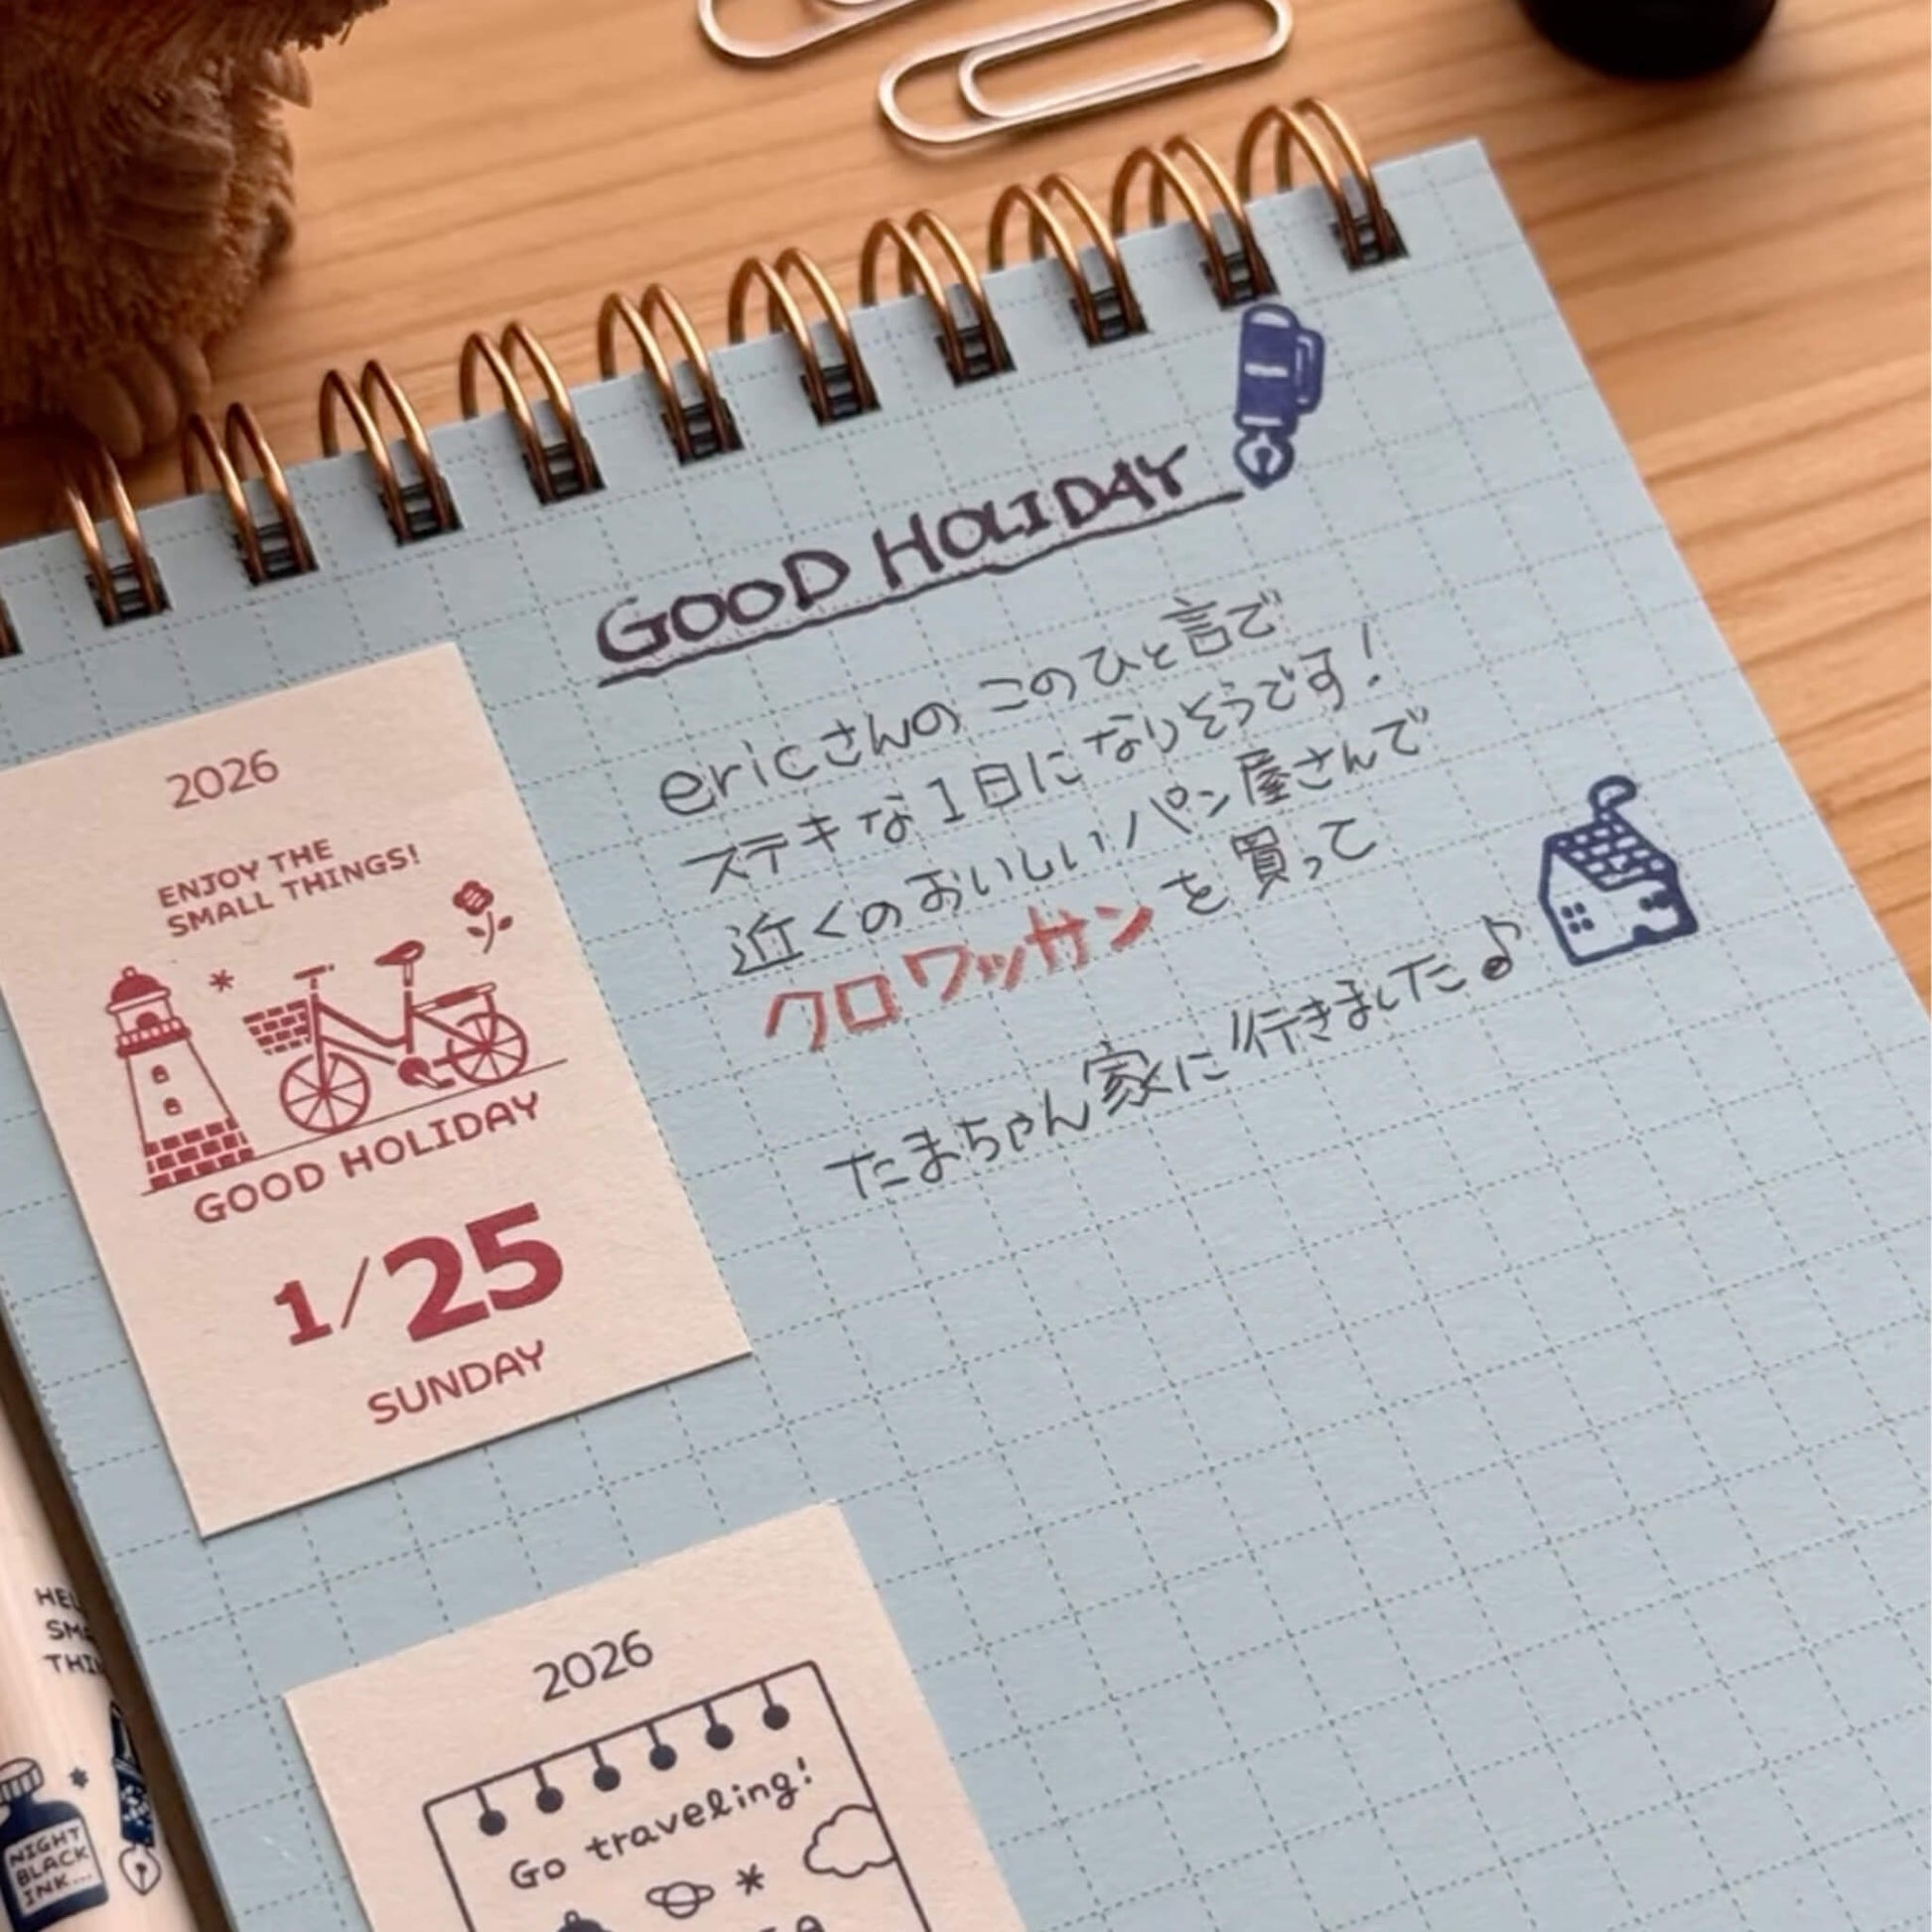 GOOD HOLIDAY
ericさんの このひと言で
ステキな1日になりそうです!
近くのおいしいパン屋さんで
クロワッサンを買って
たまちゃん家に行きました♪
2026
ENJOY THE
SMALL THINGS!
GOOD HOLIDAY
1/25
SUNDAY
2026
Go traveling!
NIGHT
BLACK
INK...